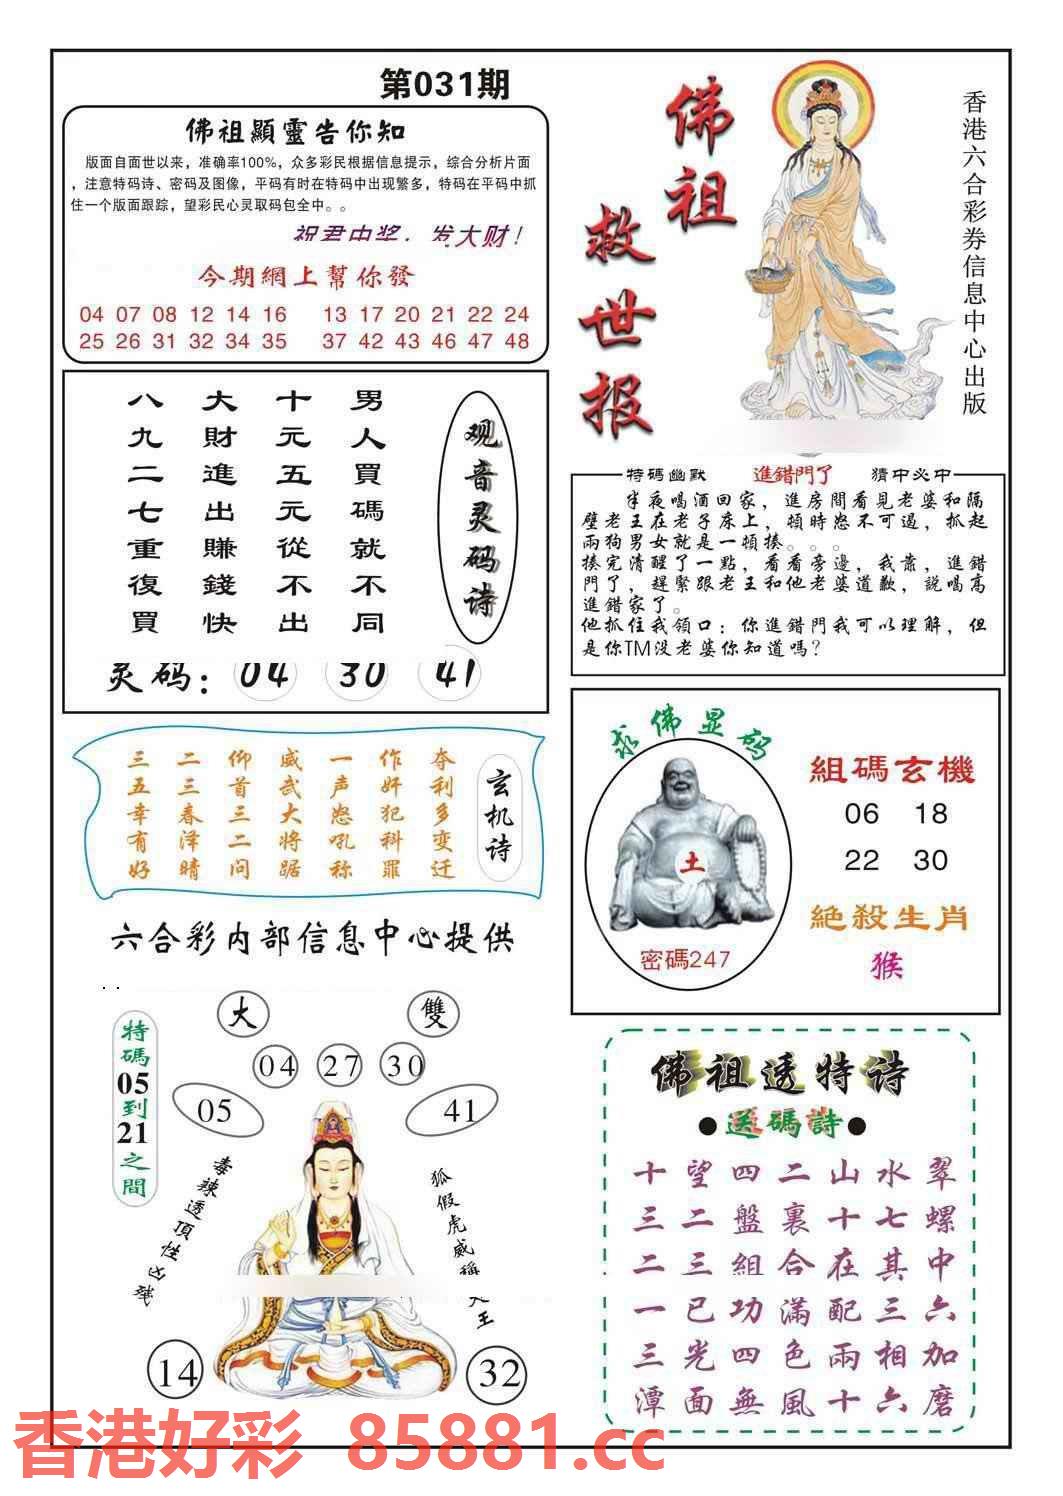 第031期
佛祖顯靈告你知
版面自面世以来，准确率100%，众多彩民根据信息提示，综合分析片面
，注意特码诗、密码及图像，平码有时在特码中出现繁多，特码在平码中抓
住一个版面跟踪，望彩民心灵取码包全中。。
祝君中奖，发大财！
今期網上幫你發
04 07 08 12 14 16 13 17 20 21 22 24
25 26 31 32 34 35 37 42 43 46 47 48
佛祖
救世报
香港六合彩券信息中心出版
观音灵码诗
男人買碼就不同
十元五元從不出
大財進出賺錢快
八九二七重復買
灵码：04 30 41
特碼幽默 進錯門了 猜中必中
半夜喝酒回家，進房間看見老婆和隔
壁老王在老子床上，頓時怒不可遏，抓起
兩狗男女就是一頓揍。。。
揍完清醒了一點，看看旁邊，我靠，進錯
門了，趕緊跟老王和他老婆道歉，説喝高
進錯家了。
他抓住我領口：你進錯門我可以理解，但
是你TM没老婆你知道嗎？
玄机诗
夺利多变迁
作奸犯科罪
一声怒吼称
威武大将踞
仰首三二问
二三春泽晴
三五幸有好
求佛显码
土
密碼247
組碼玄機
06 18
22 30
絶殺生肖
猴
六合彩内部信息中心提供
大 雙
04 27 30
05 41
特碼05到21之間
毒辣透頂性凶残
狐假虎威稱
王
14 32
佛祖透特诗
●送碼詩●
十望四二山水翠
三二盤裏十七螺
二三組合在其中
一已功滿配三六
三光四色兩相加
潭面無風十六磨
香港好彩 85881.cc